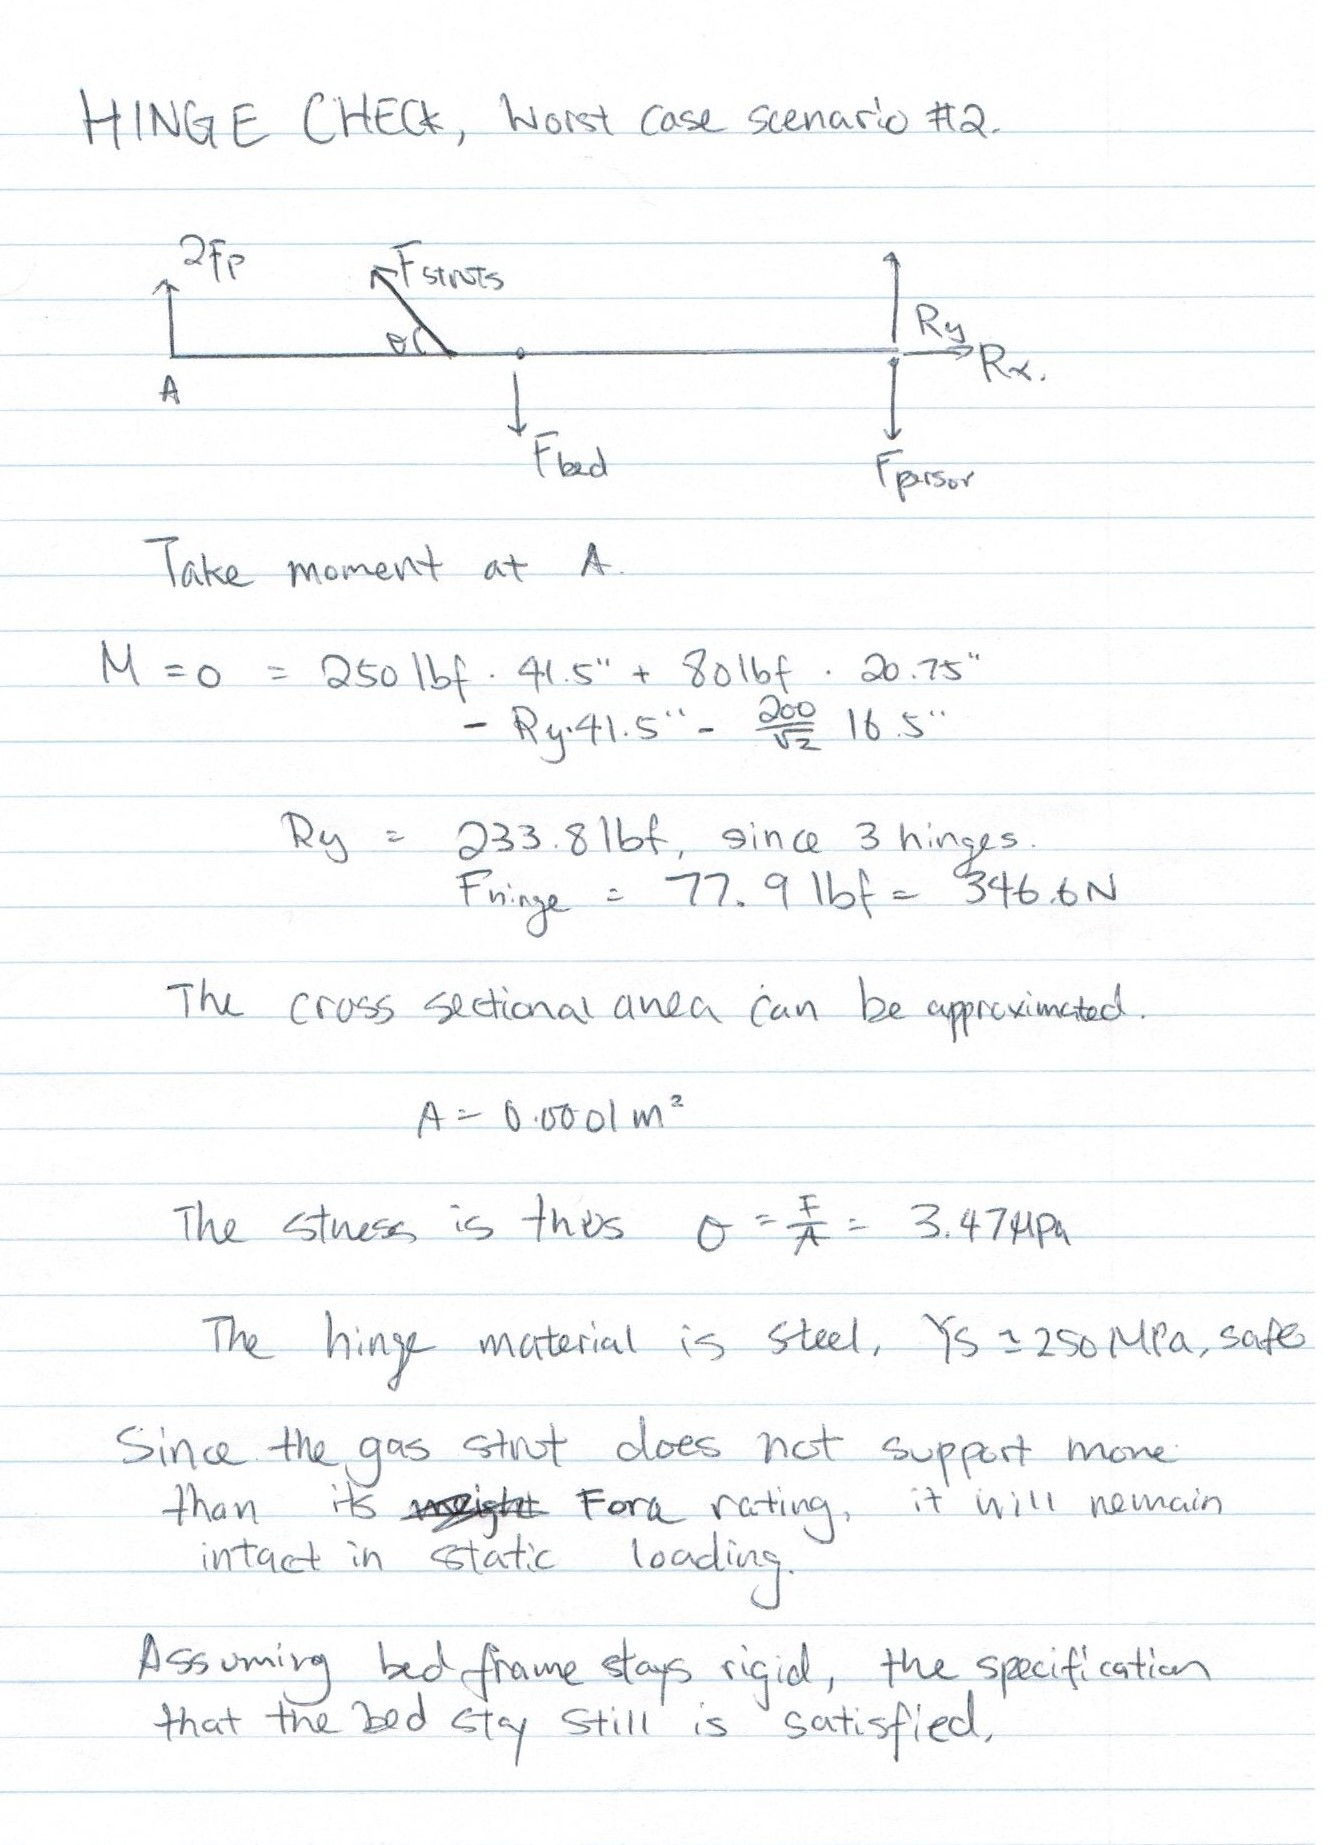 HINGE CHECK, Worst case scenario #2.
2Fp
Fstruts
θ
Ry
Rx.
A
Fbed
Fperson
Take moment at A.
M = 0 = 250 lbf · 41.5" + 80 lbf · 20.75"
- Ry·41.5" - 200/√2 16.5"
Ry = 233.8 lbf, since 3 hinges.
Fhinge = 77.9 lbf = 346.6N
The cross sectional area can be approximated.
A = 0.0001 m²
The stress is thus σ = F/A = 3.47 MPa
The hinge material is steel, YS ≃ 250 MPa, safe
Since the gas strut does not support more
than its Force rating, it will remain
intact in static loading.
Assuming bed frame stays rigid, the specification
that the bed stay still is satisfied.